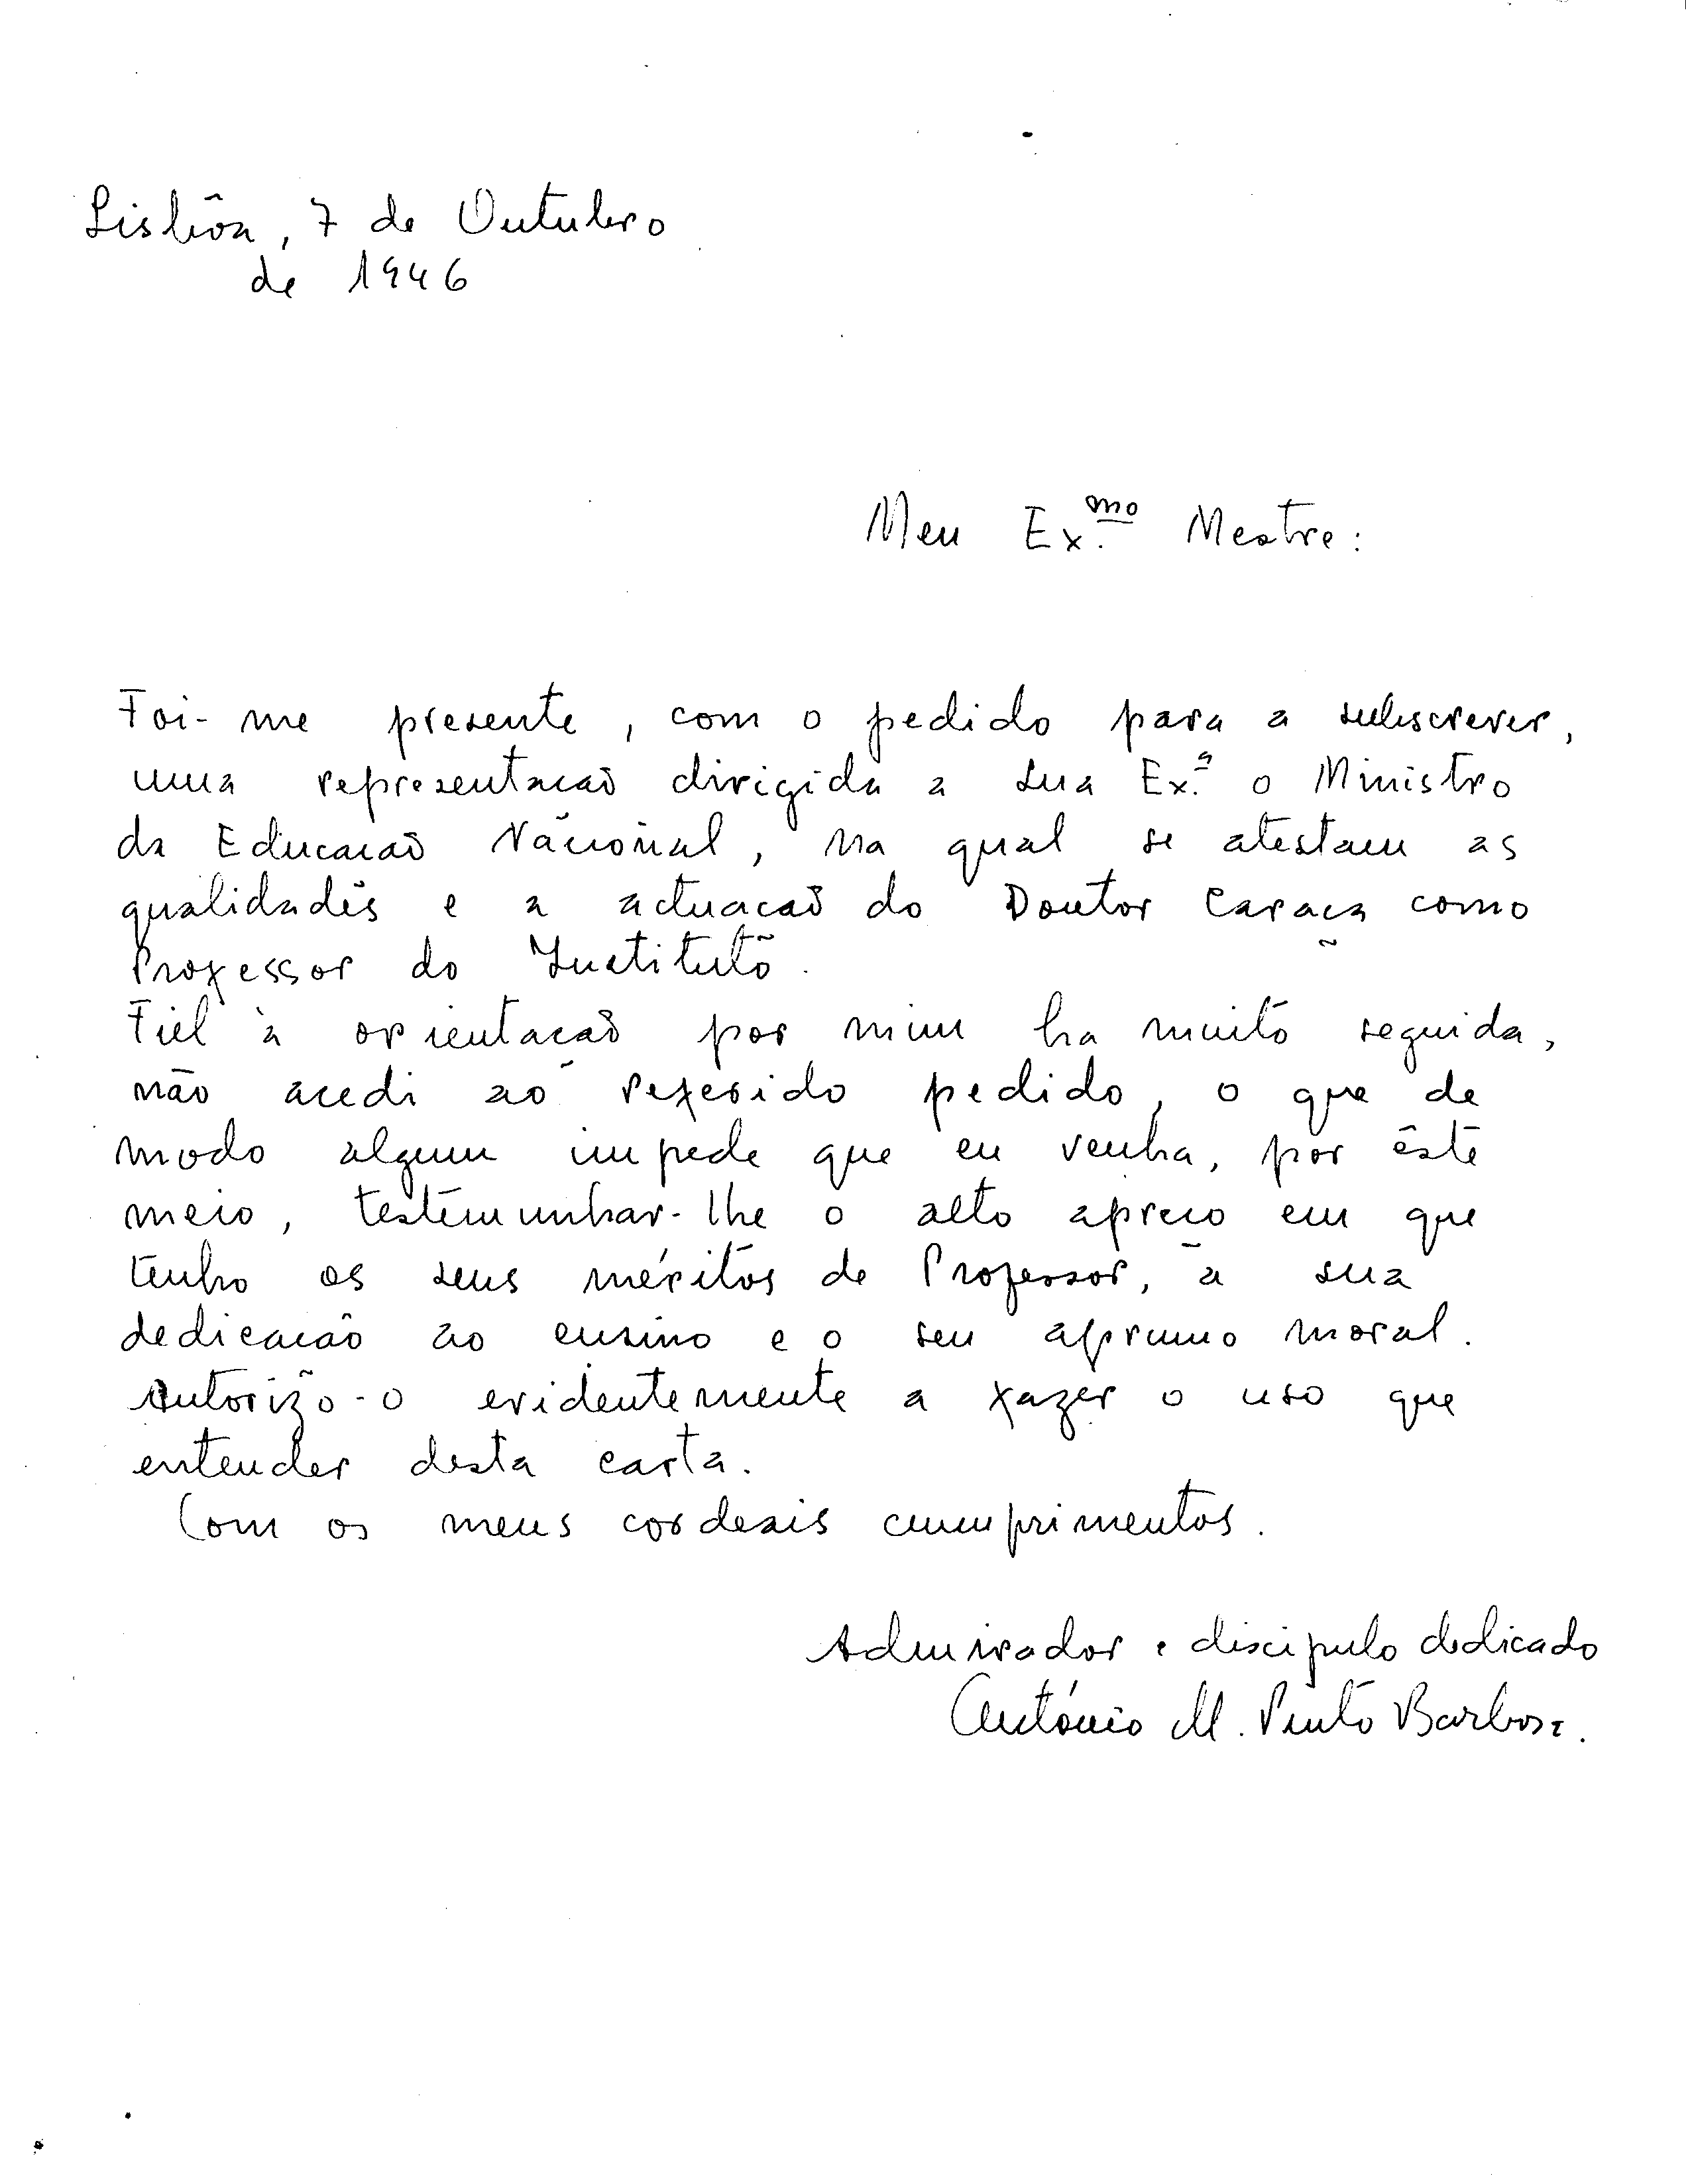 Lisbôa, 7 de Outubro
de 1946
Meu Ex.mo Mestre:
Foi-me presente, com o pedido para a subscrever,
uma representação dirigida a Sua Ex.ª o Ministro
da Educação Nacional, na qual se atestam as
qualidades e a actuação do Doutor Caraça como
Professor do Instituto.
Fiel à orientação por mim ha muito seguida,
não acedi ao referido pedido, o que de
modo algum impede que eu venha, por êste
meio, testemunhar-lhe o alto apreço em que
tenho os seus méritos de Professor, a sua
dedicação ao ensino e o seu aprumo moral.
Autorizo-o evidentemente a fazer o uso que
entender desta carta.
Com os meus cordeais cumprimentos.
Admirador e discipulo dedicado
António M. Pinto Barbosa.